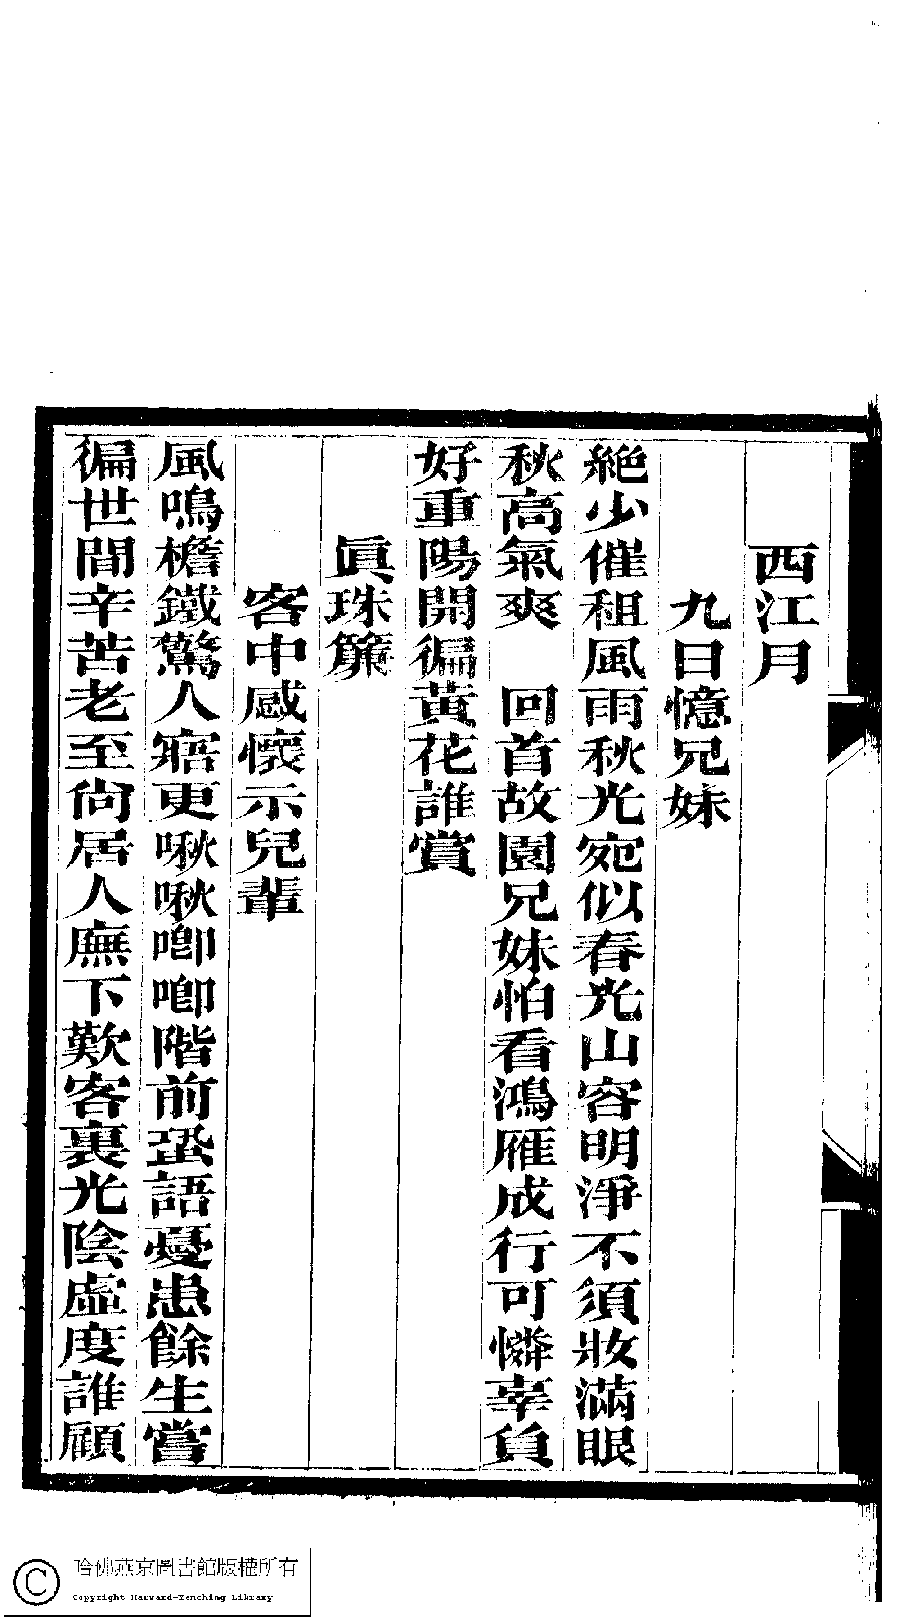 西江月
九日憶兄妹
絕少催租風雨秋光宛似春光山容明淨不須妝滿眼
秋高氣爽　回首故園兄妹怕看鴻雁成行可憐辜負
好重陽開徧黃花誰賞
眞珠簾
客中感懷示兒輩
風鳴檐鐵驚人寤更啾啾喞喞階前蛩語憂患餘生嘗
徧世間辛苦老至尙居人廡下歎客裏光陰虛度誰顧
哈佛燕京圖書館版權所有
Copyright Harvard-Yenching Library